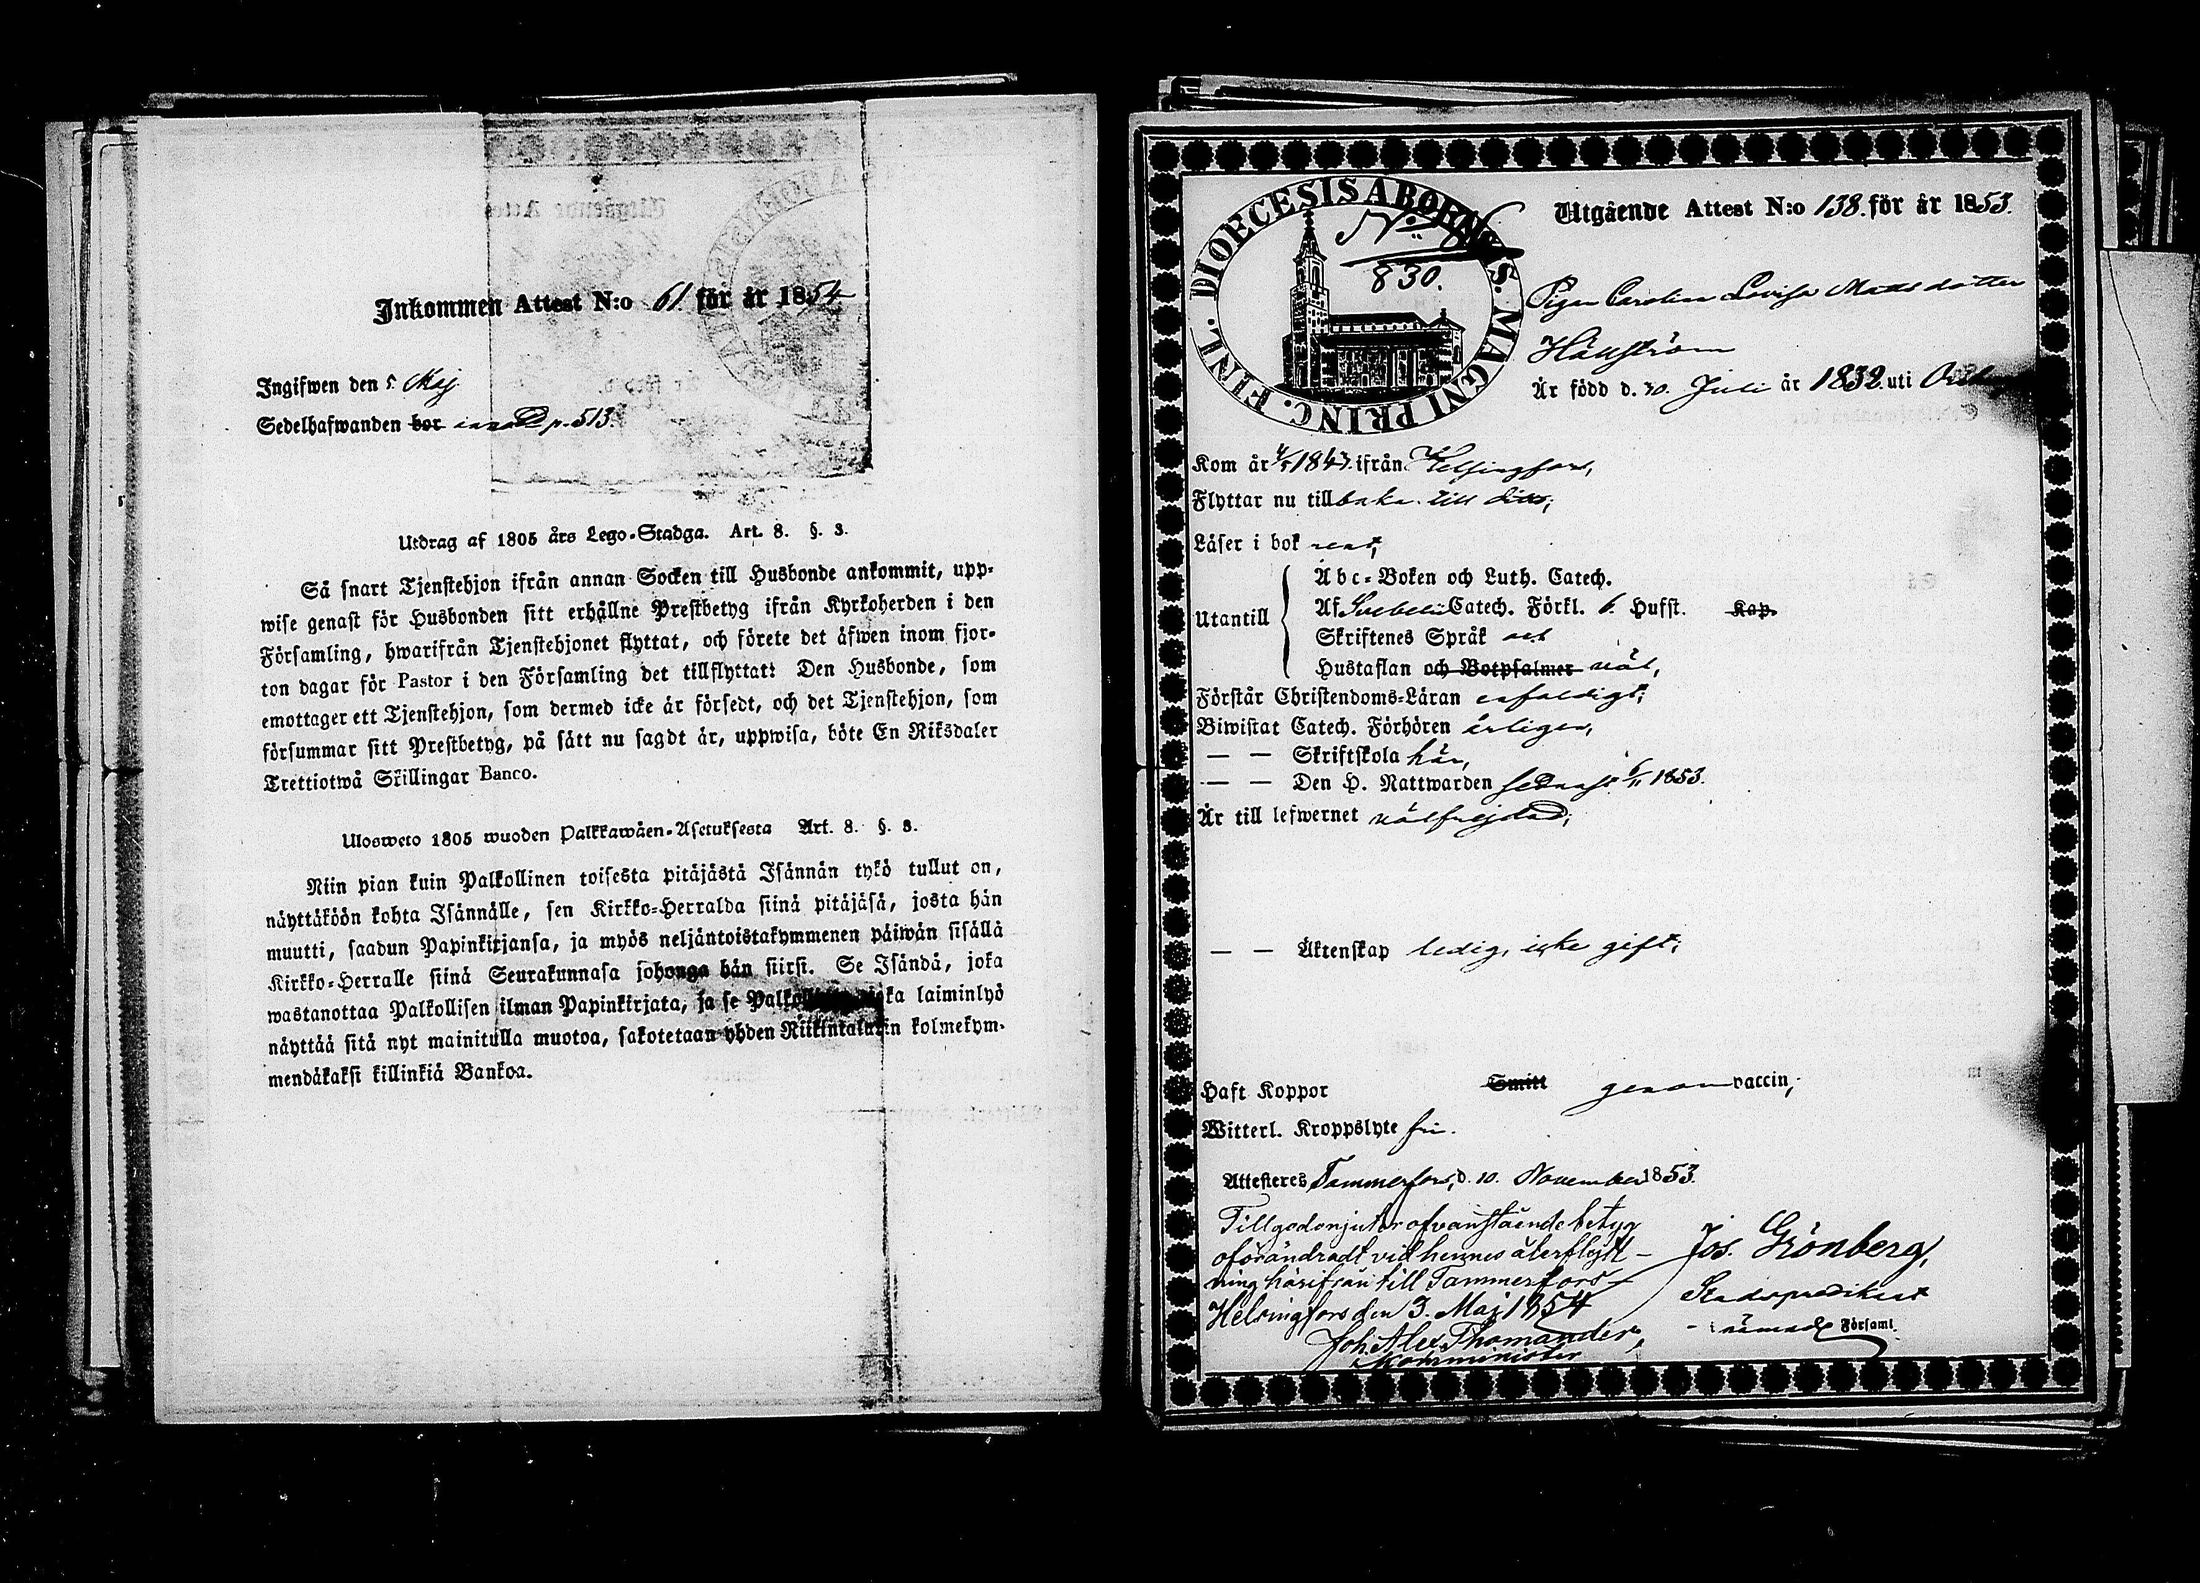 Inkommen Attest N:o 61. för år 1854
Ingifwen den 5 Maj
Sedelhafwanden bor p. 513.
Utdrag af 1805 års Lego-Stadga. Art. 8. §. 3.
Så snart Tjenstehjon ifrån annan Socken till Husbonde ankommit, upp-
wise genast för Husbonden sitt erhållne Prestbetyg ifrån Kyrkoherden i den
Församling, hwarifrån Tjenstehjonet flyttat, och förete det äfwen inom fjor-
ton dagar för Pastor i den Församling det tillflyttat: Den Husbonde, som
emottager ett Tjenstehjon, som dermed icke är försedt, och det Tjenstehjon, som
försummar sitt Prestbetyg, på sätt nu sagdt är, uppwisa, böte En Riksdaler
Trettiotwå Skillingar Banco.
Ulosweto 1805 wuoden Palkkawäen-Asetuksesta Art. 8. §. 3.
Niin pian kuin Palkollinen toisesta pitäjästä Isännän tykö tullut on,
näyttäköön kohta Isännälle, sen Kirkko-Herralda siinä pitäjäsä, josta hän
muutti, saadun Papinkirjansa, ja myös neljäntoistakymmenen päiwän sisällä
Kirkko-Herralle siinä Seurakunnasa johonga hän siirsi. Se Isändä, joka
wastanottaa Palkollisen ilman Papinkirjata, ja se Palkollinen joka laiminlyö
näyttää sitä nyt mainitulla muotoa, sakotetaan yhden Riikintalarin kolmekym-
mendäkaksi killinkiä Bankoa.
DIOECESIS ABOENSIS. MAGNI PRINC. FINL.
830.
Utgående Attest N:o 138. för år 1853.
Pigan Carolina Lovisa Matsdotter
Hällström
Är född d. 30. Juli år 1832. uti
Kom år 1843. ifrån Helsingfors,
Flyttar nu tillbaka till dito,
Läser i bok rent,
Utantill
Abc-Boken och Luth. Catech.
Af Svebelii Catech. Förkl. 6. Hufst. Kap.
Skriftenes Språk och
Hustaflan och Botpsalmer väl,
Förstår Christendoms-Läran enfaldigt,
Biwistat Catech. Förhören årligen,
— — Skriftskola här,
— — Den H. Nattwarden sednast 6/11 1853.
Är till lefwernet välfrejdad,
— — Äktenskap ledig, icke gift,
Haft Koppor Smitt genom vaccin,
Witterl. Kroppslyte fri.
Attesteres Tammerfors, d. 10. November 1853.
Jos. Grönberg,
Stadspredikant
i nämnde Församl.
Tillgodonjuter ofvanstående betyg
oförändradt vid hennes återflytt-
ning härifrån till Tammerfors
Helsingfors den 3. Maj 1854
Joh. Alex. Thomander,
Komminister